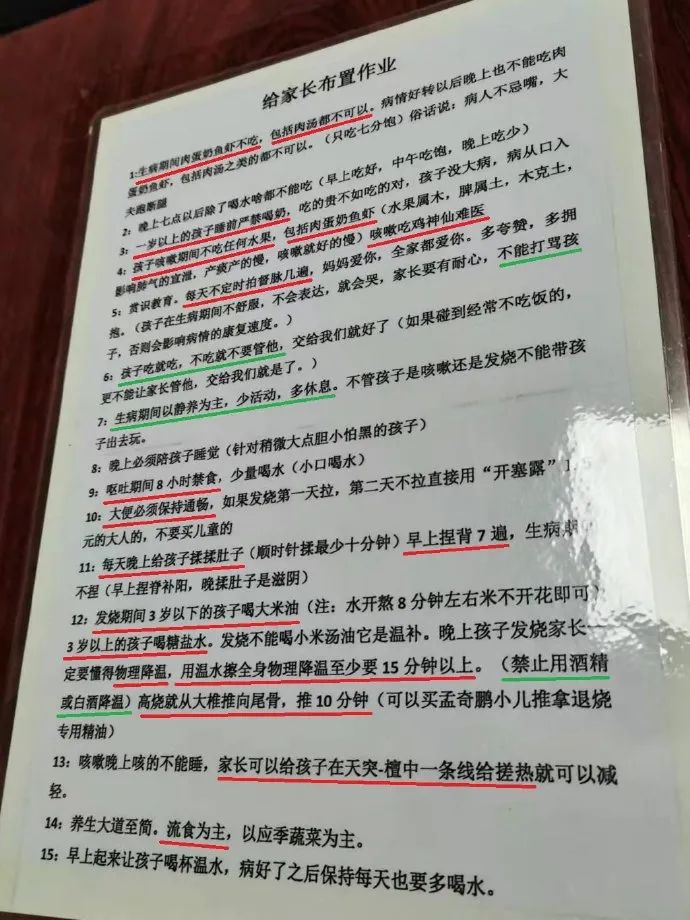 给家长布置作业
1:生病期间肉蛋奶鱼虾不吃，包括肉汤都不可以。病情好转以后晚上也不能吃肉
蛋奶鱼虾，包括肉汤之类的都不可以。（只吃七分饱）俗话说：病人不忌嘴，大
夫跑断腿
2：晚上七点以后除了喝水啥都不能吃（早上吃好，中午吃饱，晚上吃少）
3：一岁以上的孩子睡前严禁喝奶，吃的贵不如吃的对，孩子没大病，病从口入
4：孩子咳嗽期间不吃任何水果，包括肉蛋奶鱼虾（水果属木，脾属土，木克土，
影响肺气的宣泄，产痰产的慢，咳嗽就好的慢）咳嗽吃鸡神仙难医
5：赏识教育。每天不定时拍督脉几遍，妈妈爱你，全家都爱你。多夸赞，多拥
抱。（孩子在生病期间不舒服，不会表达，就会哭，家长要有耐心，不能打骂孩
子，否则会影响病情的康复速度。）
6：孩子吃就吃，不吃就不要管他，交给我们就好了（如果碰到经常不吃饭的，
更不能让家长管他，交给我们就是了。）
7：生病期间以静养为主，少活动，多休息。不管孩子是咳嗽还是发烧不能带孩
子出去玩。
8：晚上必须陪孩子睡觉（针对稍微大点胆小怕黑的孩子）
9：呕吐期间8小时禁食，少量喝水（小口喝水）
10：大便必须保持通畅，如果发烧第一天拉，第二天不拉直接用“开塞露”1
元的大人的，不要买儿童的
11：每天晚上给孩子揉揉肚子（顺时针揉最少十分钟）早上捏背7遍，生病期
不捏（早上捏脊补阳，晚揉肚子是滋阴）
12：发烧期间3岁以下的孩子喝大米油（注：水开熬8分钟左右米不开花即可）
3岁以上的孩子喝糖盐水。发烧不能喝小米汤油它是温补。晚上孩子发烧家长一
定要懂得物理降温，用温水擦全身物理降温至少要15分钟以上。（禁止用酒精
或白酒降温）高烧就从大椎推向尾骨，推10分钟（可以买孟奇鹏小儿推拿退烧
专用精油）
13：咳嗽晚上咳的不能睡，家长可以给孩子在天突-檀中一条线给搓热就可以减
轻。
14：养生大道至简。流食为主，以应季蔬菜为主。
15：早上起来让孩子喝杯温水，病好了之后保持每天也要多喝水。